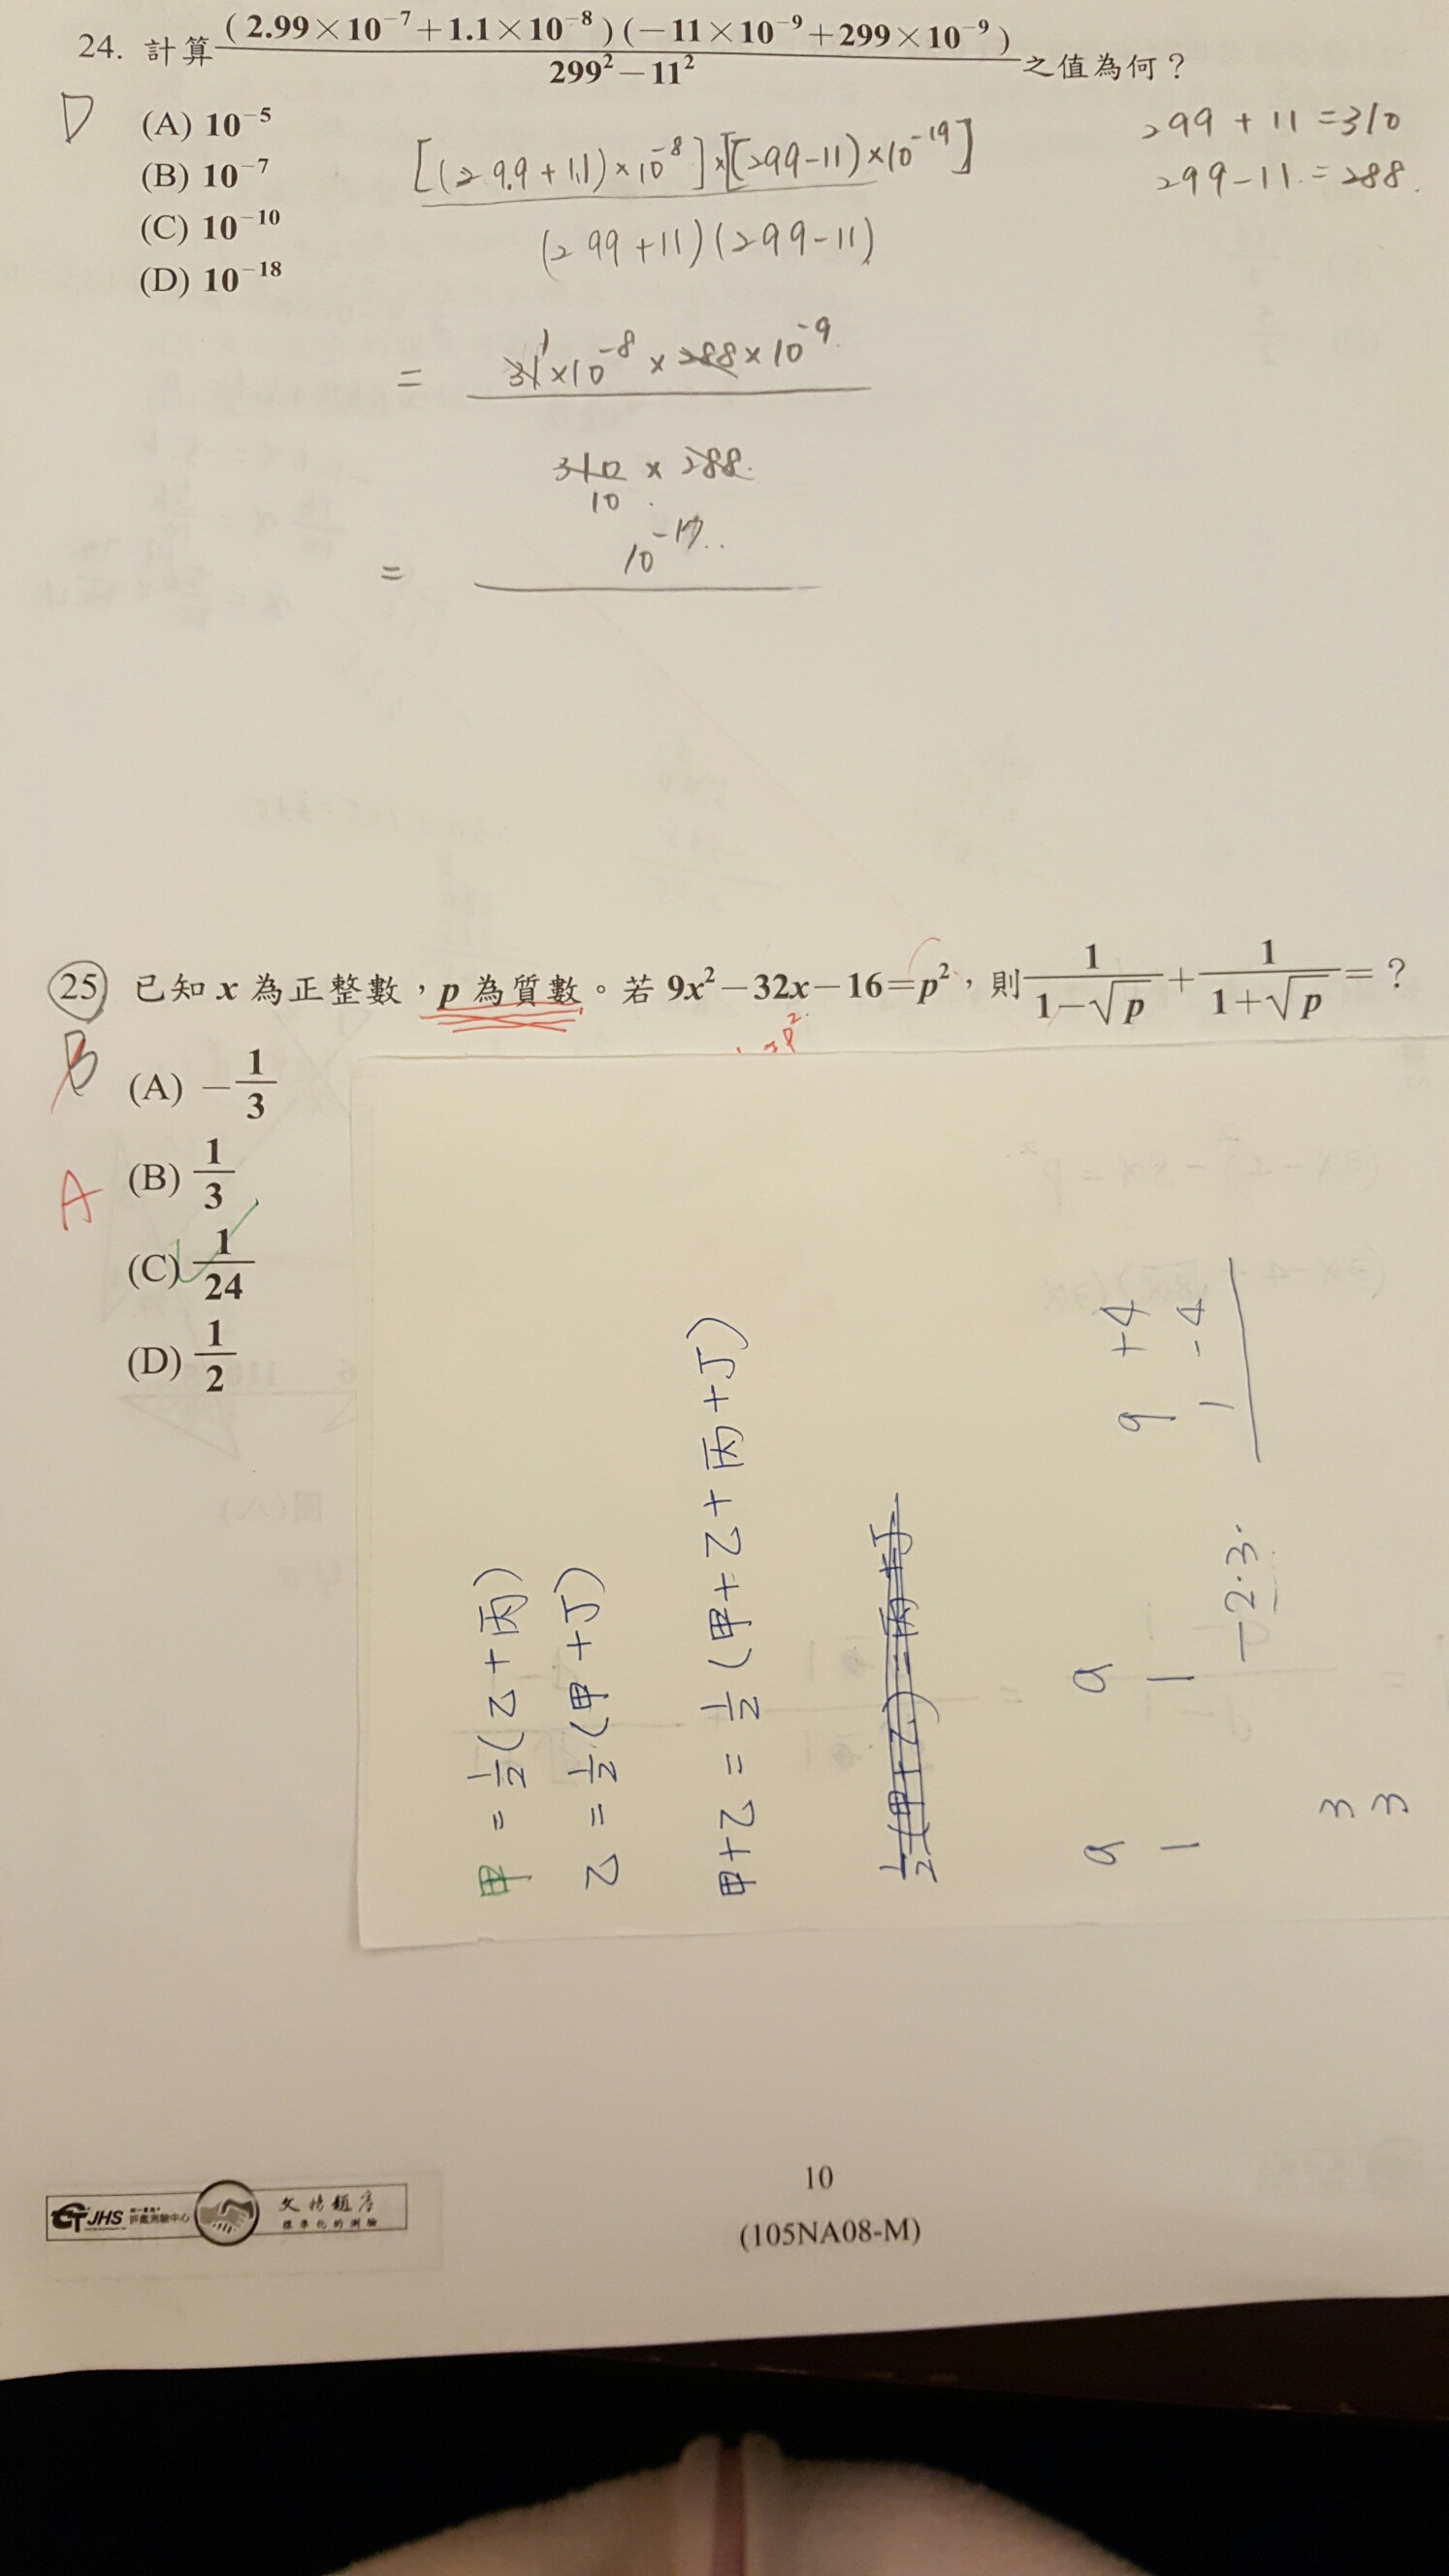 24. 計算 (2.99×10⁻⁷+1.1×10⁻⁸)(−11×10⁻⁹+299×10⁻⁹) / 299²−11² 之值為何？
D
(A) 10⁻⁵
(B) 10⁻⁷
(C) 10⁻¹⁰
(D) 10⁻¹⁸
[(29.9+1.1)×10⁻⁸]×[(299-11)×10⁻¹⁹]
(299+11)(299-11)
299+11=310
299-11=288
= 31×10⁻⁸×288×10⁻⁹
1
310×288
10
= 10⁻¹⁷
25 已知 x 為正整數，p 為質數。若 9x²−32x−16=p²，則 1/(1−√p) + 1/(1+√p) =？
B
A
(A) −1/3
(B) 1/3
(C) 1/24
(D) 1/2
甲 = 1/2(乙+丙)
乙 = 1/2(甲+丁)
甲+乙 = 1/2(甲+乙+丙+丁)
9 +4
1 -4
9
1
9
1
3
3
JHS
評鑑測驗中心
標準化的測驗
10
(105NA08-M)